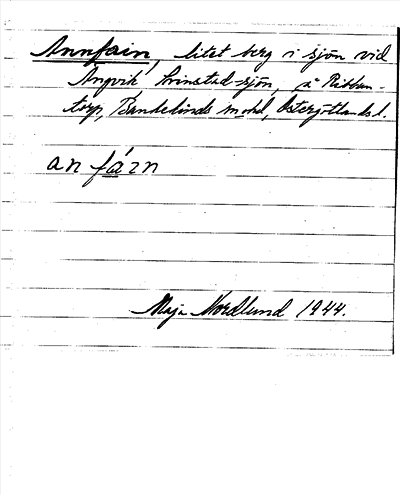 Annfain, litet berg i sjön vid
Ängvik, Grinstad-sjön, å Ribbin-
torp, Bankekinds mskd, Östergötlands l.
an fázn
Maja Nordlund 1944.